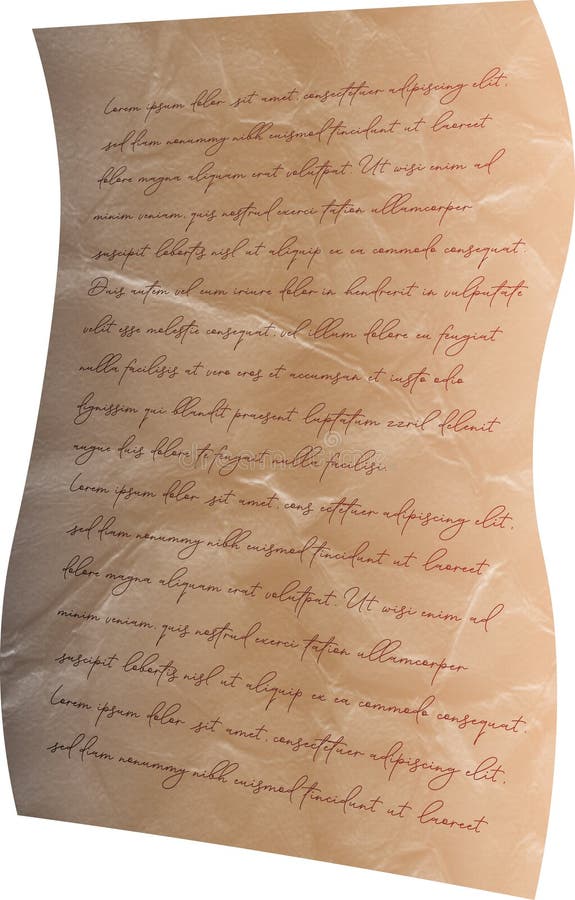 Lorem ipsum dolor sit amet, consectetuer adipiscing elit,
sed diam nonummy nibh euismod tincidunt ut laoreet
dolore magna aliquam erat volutpat. Ut wisi enim ad
minim veniam, quis nostrud exerci tation ullamcorper
suscipit lobortis nisl ut aliquip ex ea commodo consequat.
Duis autem vel eum iriure dolor in hendrerit in vulputate
velit esse molestie consequat, vel illum dolore eu feugiat
nulla facilisis at vero eros et accumsan et iusto odio
dignissim qui blandit praesent luptatum zzril delenit
augue duis dolore te feugait nulla facilisi.
dreamstime
Lorem ipsum dolor sit amet, cons ectetuer adipiscing elit,
sed diam nonummy nibh euismod tincidunt ut laoreet
dolore magna aliquam erat volutpat. Ut wisi enim ad
minim veniam, quis nostrud exerci tation ullamcorper
suscipit lobortis nisl ut aliquip ex ea commodo consequat.
Lorem ipsum dolor sit amet, consectetuer adipiscing elit,
sed diam nonummy nibh euismod tincidunt ut laoreet